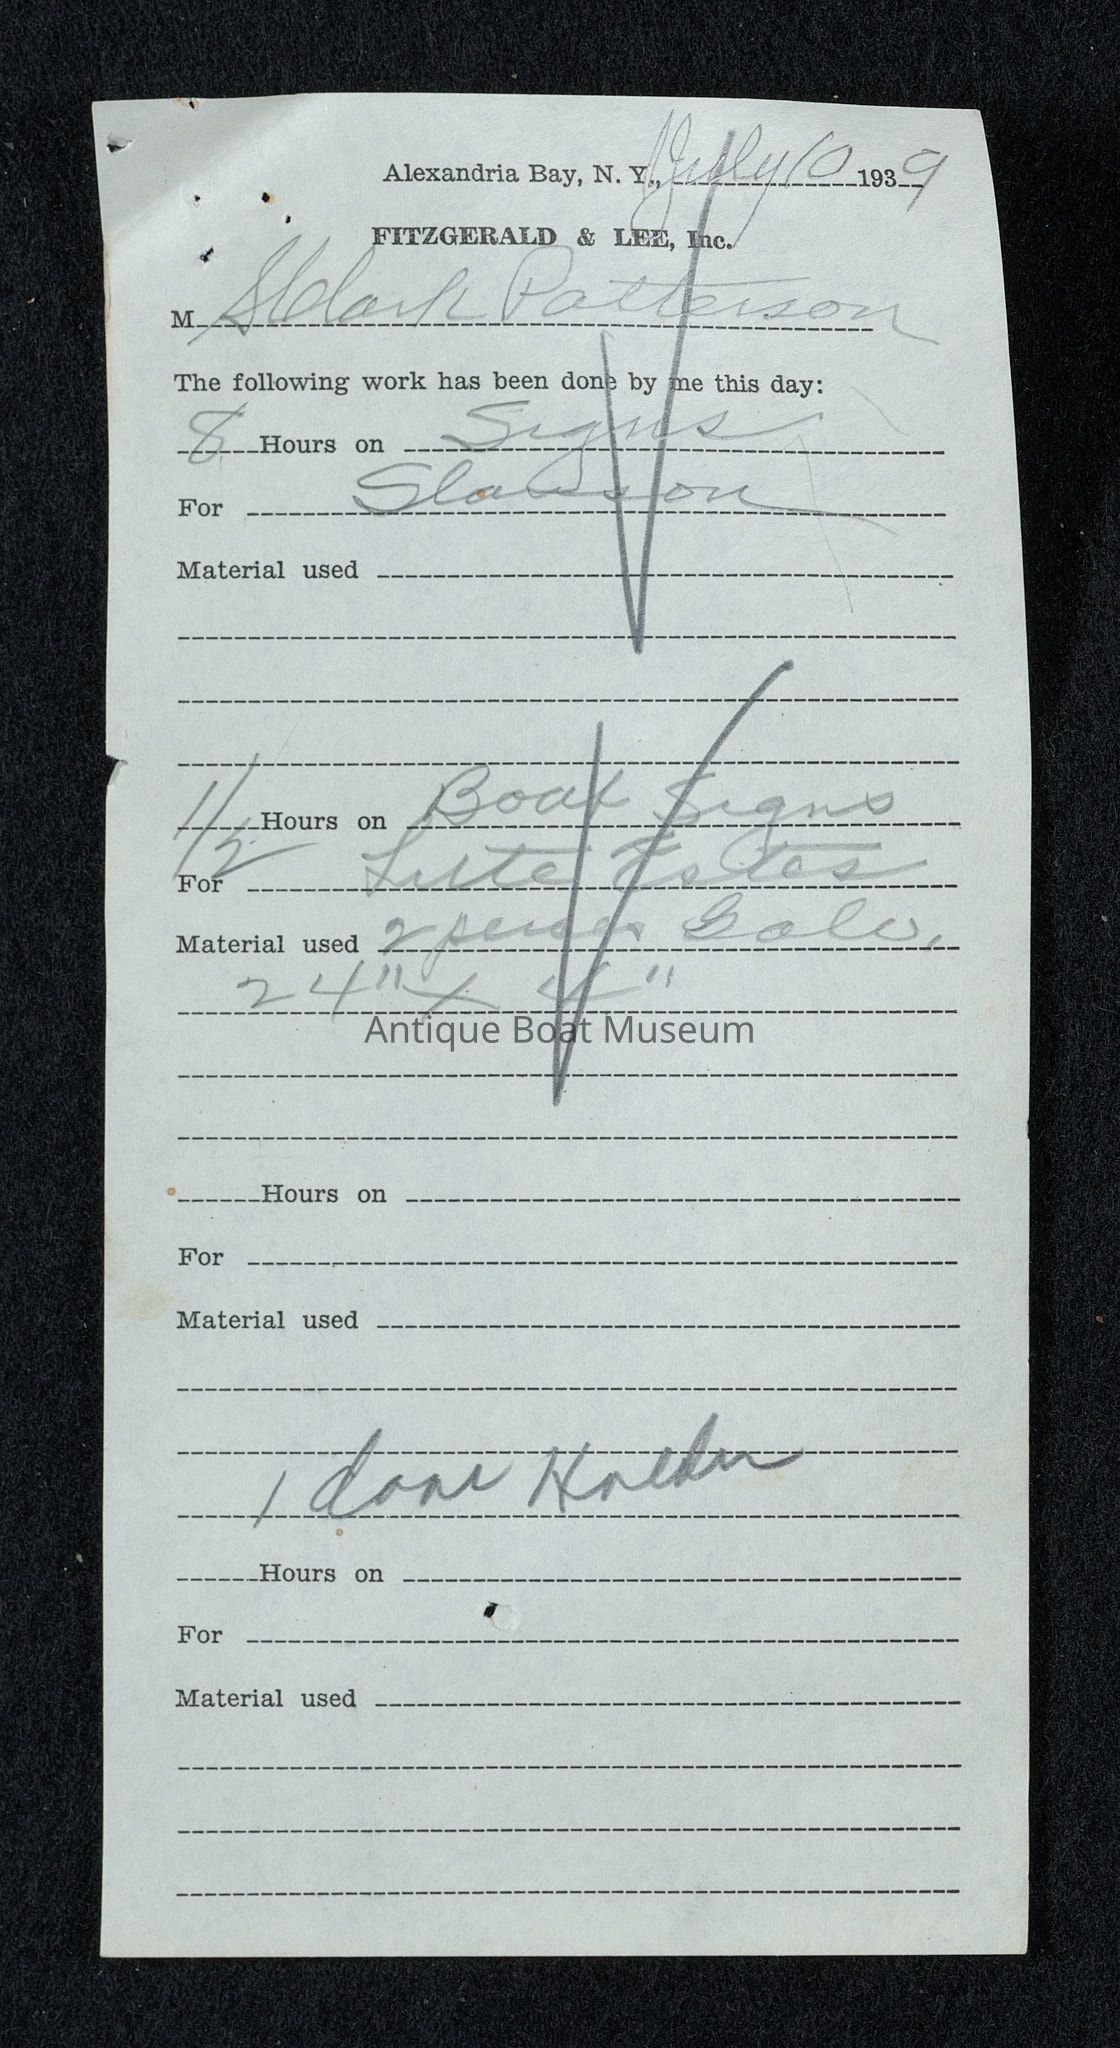 Alexandria Bay, N. Y., July 10 1939
FITZGERALD & LEE, Inc.
M Clark Patterson
The following work has been done by me this day:
8 Hours on Signs
For Slawson
Material used
1/2 Hours on Boat Signs
For Estes
Material used 2 pieces Galv.
24" x 4"
Antique Boat Museum
Hours on
For
Material used
1
Hours on
For
Material used